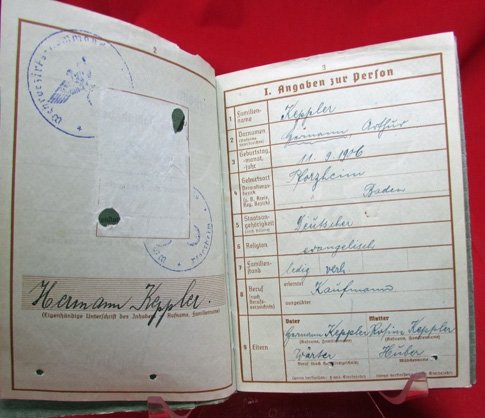 2
Hermann Keppler.
(Eigenhändige Unterschrift des Inhabers — Rufname, Familienname)
3
I. Angaben zur Person
1 Familien-
name
Keppler
2 Vornamen
(Rufname
unterstreichen)
Hermann Arthur
3 Geburtstag,
-monat,
-jahr
11. 9. 1906
4 Geburtsort
Verwaltungs-
bezirk
(z. B. Kreis,
Reg.-Bezirk)
Pforzheim
Baden
5 Staatsan-
gehörigkeit
Deutscher
6 Religion
evangelisch
7 Familien-
stand
ledig verh.
8 Beruf
(nach
Berufs-
verzeichnis)
erlernter
Kaufmann
ausgeübter
9 Eltern
Vater
Mutter
Hermann Keppler
Keppler
(Rufname, Familienname)
(Rufname, Familienname)
Wärter
Huber
(Mädchenname)